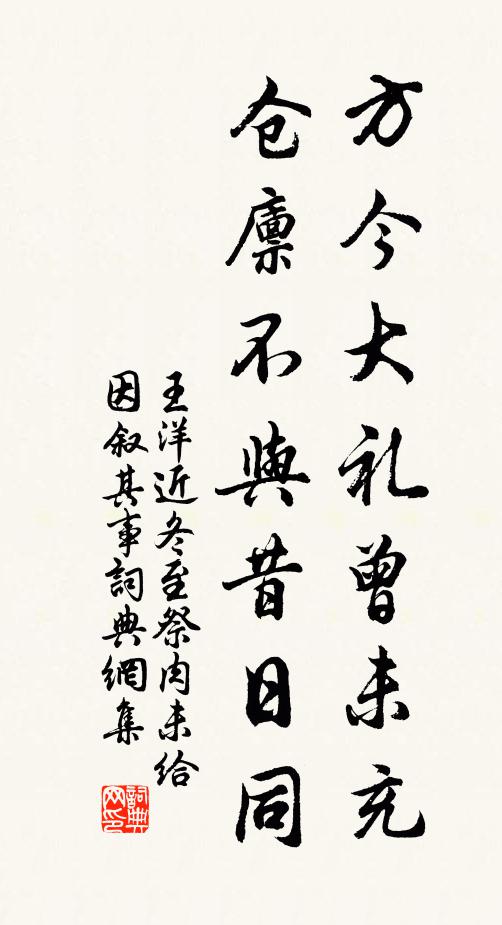 方今大礼曾未充
仓廪不與昔日同
王洋近冬至祭肉未给
因叙其事詞典網集
詞典网印